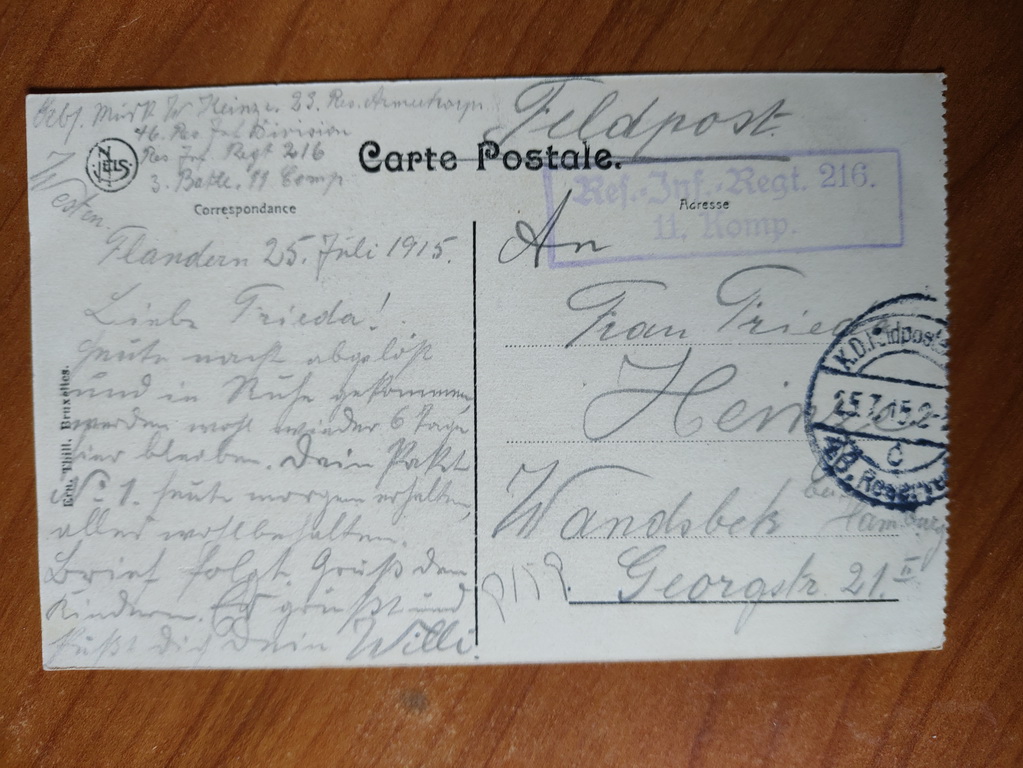 Abs. Musk. W Heinze. 23. Res. Armeekorps
46. Res Inf Division
Res Inf. Regt 216
3. Batle. 11 Comp
Westen.
NELS
Feldpost.
Carte Postale.
Correspondance
Adresse
Res.-Inf.-Regt. 216.
11. Komp.
Flandern 25. Juli 1915.
Liebe Frieda!
Heute nacht abgelöst
und in Ruhe gekommen,
werden wohl wieder 6 Tage
hier bleiben. Dein Paket
No 1. heute morgen erhalten,
alles wohlbehalten.
Brief folgt. Gruß den
Kindern. Es grüßt und
küßt dich Dein Willi.
Ern. Thill, Bruxelles.
An
Frau Frieda
Heinze
Wandsbek bei
Hamburg
Georgstr. 21. II
K.D. Feldpost
25.7.15.2-
c
46. Reserve